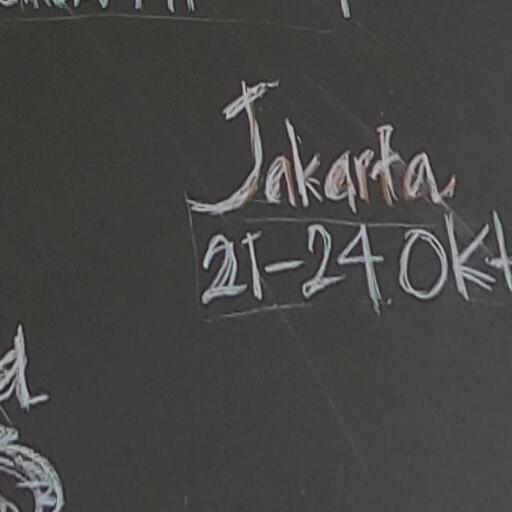 Jakarta
21-24 Okt